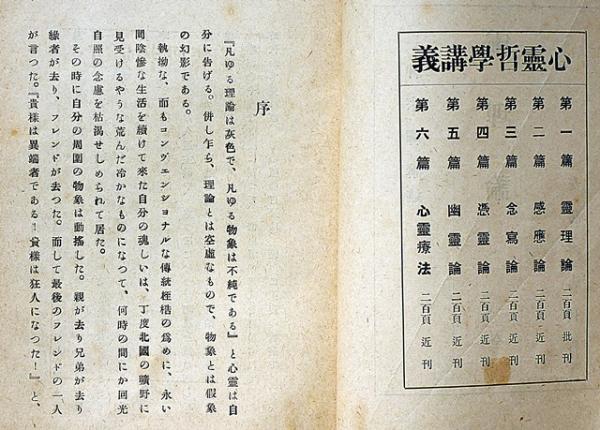 心靈哲學講義
第一篇　靈理論　二百頁　批刊
第二篇　感應論　二百頁　近刊
第三篇　念寫論　二百頁　近刊
第四篇　憑靈論　二百頁　近刊
第五篇　幽靈論　二百頁　近刊
第六篇　心靈療法　二百頁　近刊
序
『凡ゆる理論は灰色で、凡ゆる物象は不純である』と心靈は自
分に告げる。併し乍ら、理論とは空虛なもので、物象とは假象
の幻影である。
執拗な、而もコンヴェンショナルな傳統桎梏の爲めに、永い
間陰慘な生活を續けて來た自分の魂しいは、丁度北國の曠野に
見受けるやうな荒んだ冷かなものになつて、何時の間にか回光
自照の念慮を枯渴せしめられて居た。
その時に自分の周圍の物象は動搖した。親が去り兄弟が去り
緣者が去り、フレンドが去つた。而して最後のフレンドの一人
が言つた。『貴樣は異端者である！貴樣は狂人になつた！』と、